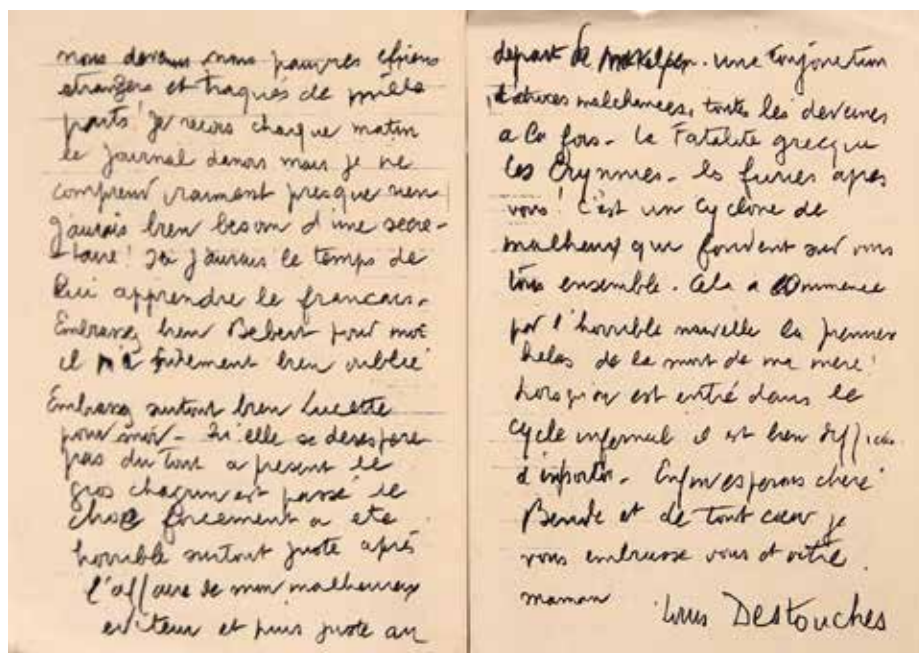 nous devenus nous pauvres chiens
etrangers et traqués de mille
parts! Je reçois chaque matin
le Journal danois mais je ne
comprend vraiment presque rien
J'aurais bien besoin d'une secre-
-taire! J'aurais le temps de
lui apprendre le francais.
Embrassez bien Bebert pour moi
il m'a surement bien oublié
Embrassez surtout bien Lucette
pour moi - Qu'elle se desespere
pas du tout a present le
gros chagrin est passé le
choc forcement a ete
horrible surtout juste après
l'affaire de mon malheureux
editeur et puis juste au
depart de Mikkelsen. une conjonction
d'atroces malchances, toutes les deveines
a la fois - la Fatalite grecque
les Erynnies - les furies apres
vous! C'est un Cyclone de
malheurs qui fondent sur vous
tous ensemble. Cela a commence
par l'horrible nouvelle la premiere
helas de la mort de ma mere!
Lorsqu'on est entré dans le
cycle infernal il est bien difficile
d'en sortir. Enfin esperons chere
Bende et de tout coeur je
vous embrasse vous et votre
maman
Louis Destouches